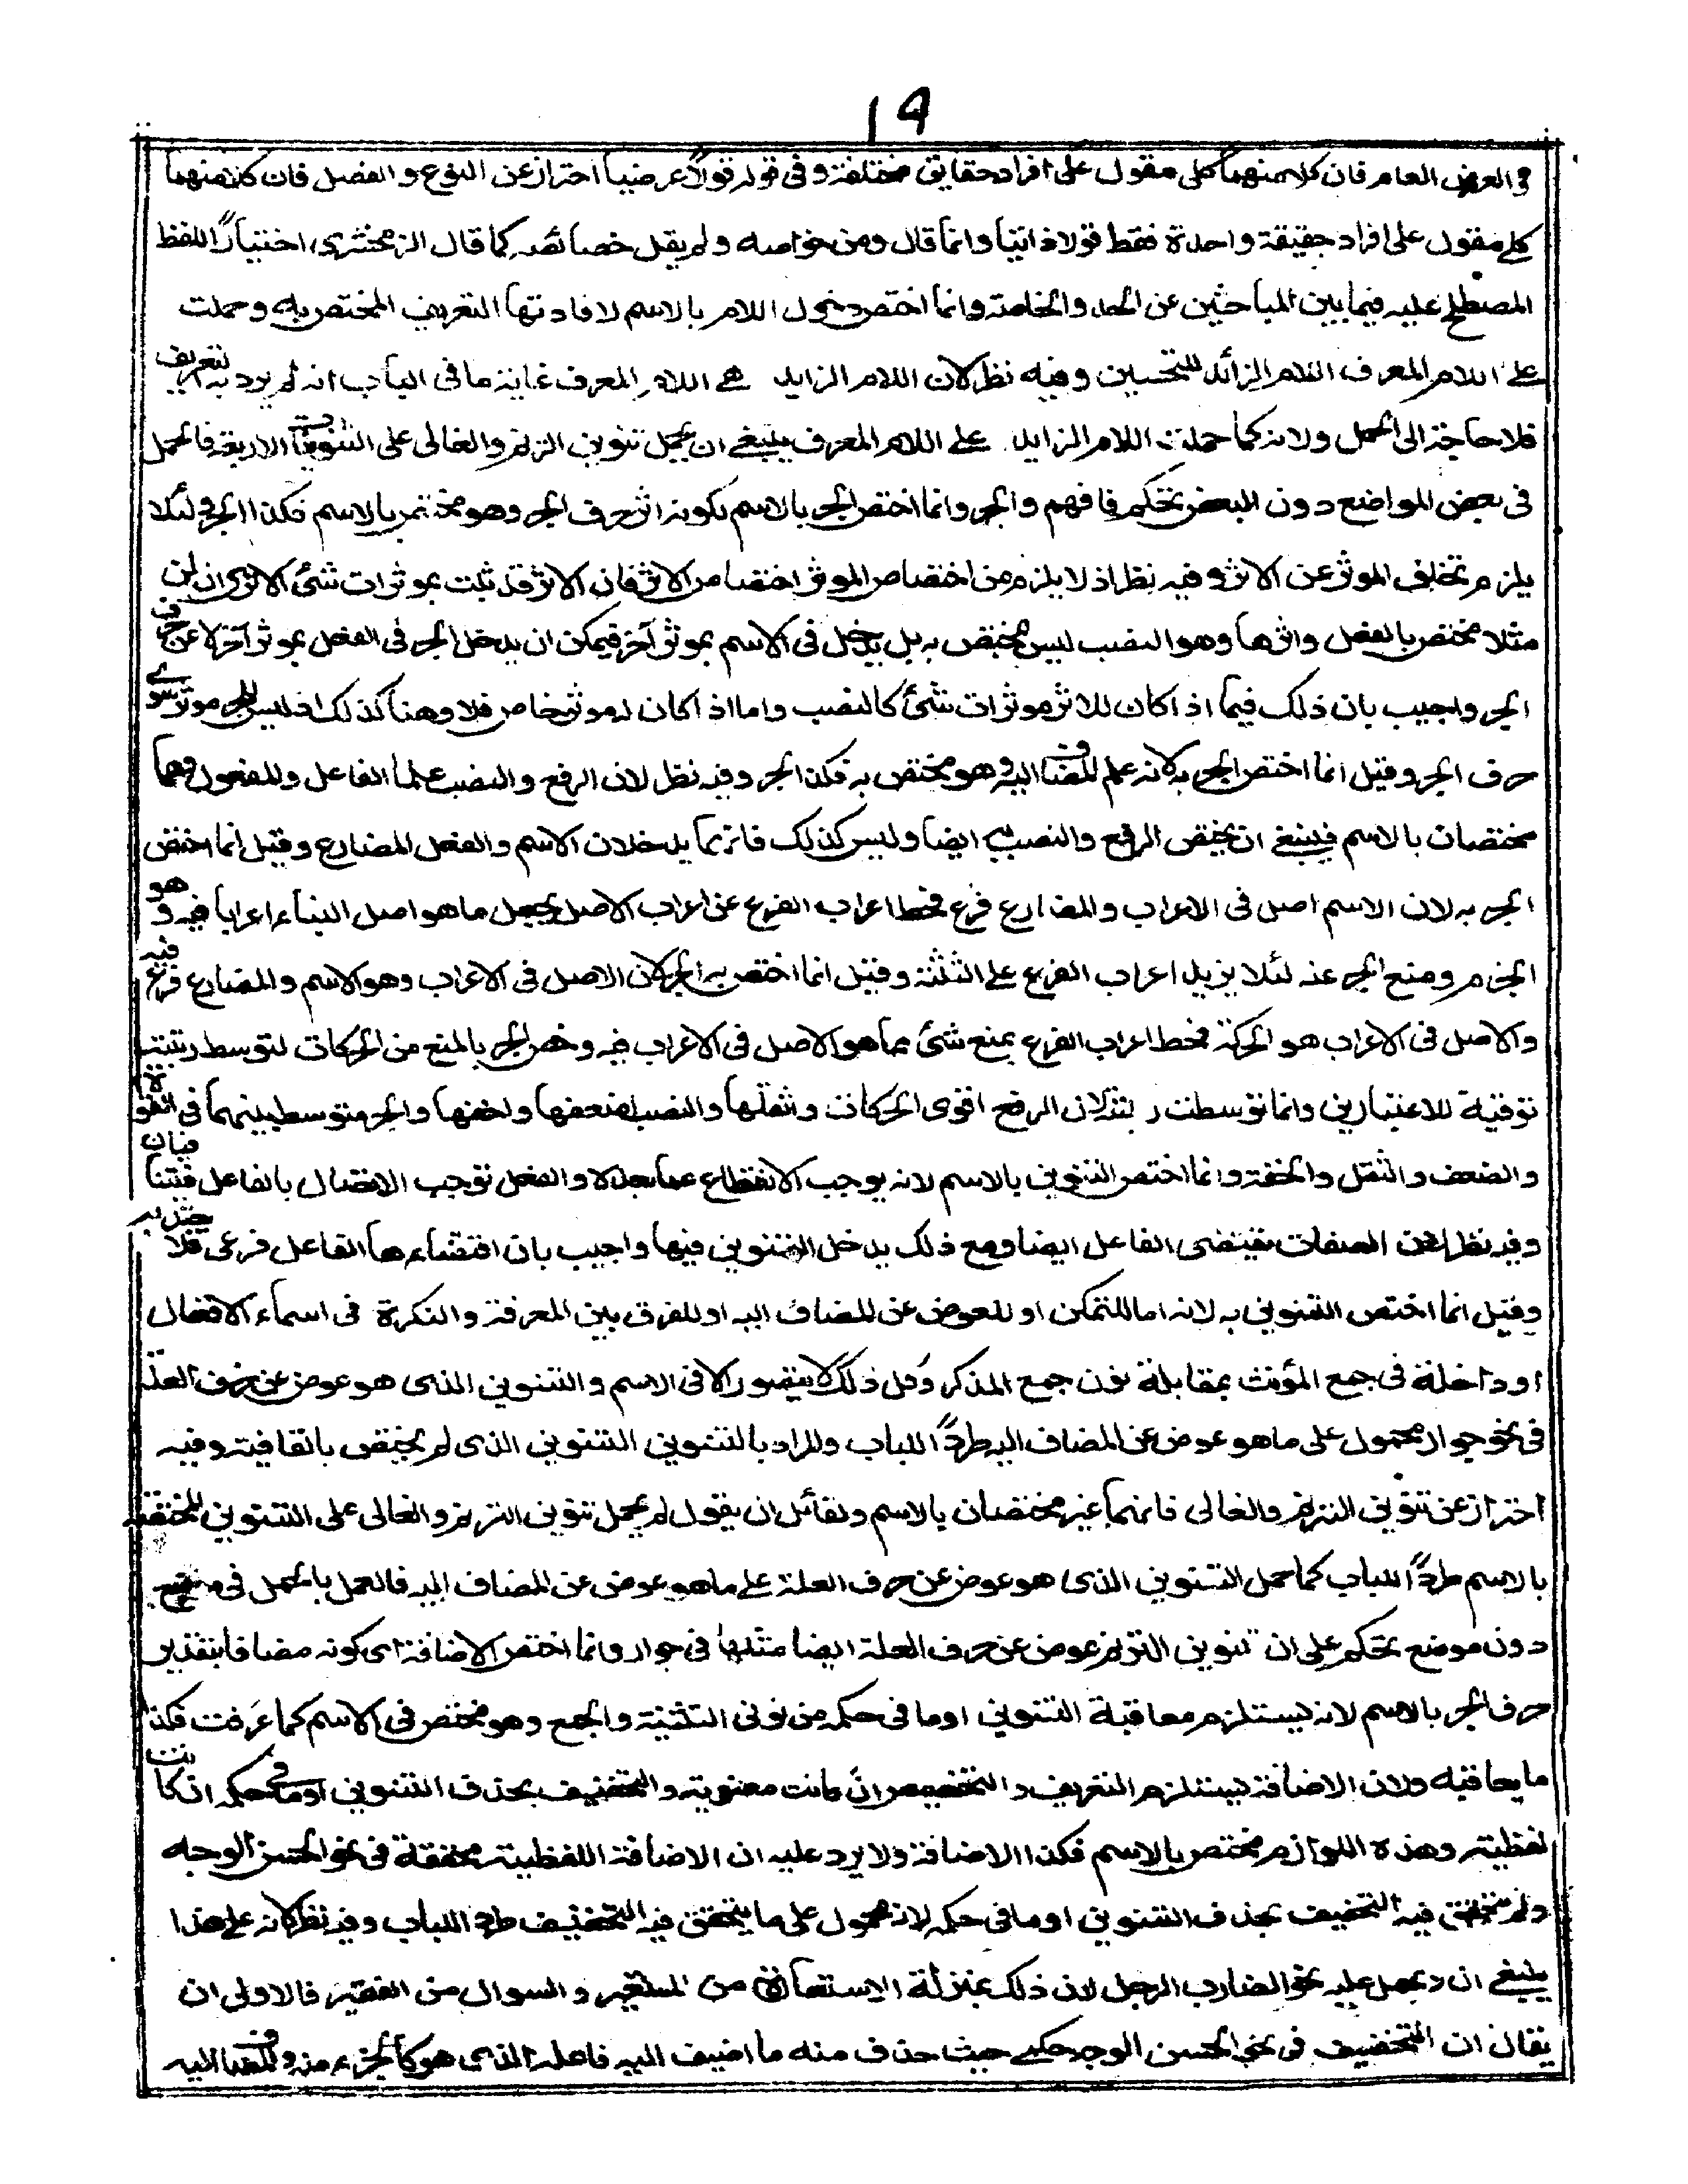 ١٩
و العرض العام فان كلا منهما كلى مقول على افراد حقايق مختلفة وفى قوله قولاً عرضياً احتراز عن النوع و الفصل فان كلا منهما
كلى مقول على افراد حقيقة واحدة فقط قولا ذاتيا وانما قال ومن خواصه ولم يقل خصائصه كما قال الزمخشرى اختياراً للفظ
المصطلح عليه فيما بين المباحثين عن الحد والخاصة وانما اختص دخول اللام بالاسم لافادتها التعريف المختص به وحملت
على اللام المعرف اللام الزائد للتحسين وفيه نظر لان اللام الزايد هى اللام المعرف غاية ما فى الباب انه لم يرد به التعريف
فلا حاجة الى الحمل ولانه كما حملت اللام الزايد على اللام المعرف ينبغى ان يحمل تنوين الترنم والغالى على التنوينات الاربعة فالحمل
فى بعض المواضع دون البعض تحكم فافهم والجر وانما اختص الجر بالاسم لكونه اثر حرف الجر وهو مختص بالاسم فكذا الجر لئلا
يلزم تخلف الموثر عن الاثر وفيه نظر اذ لا يلزم من اختصاص الموثر اختصاص الاثر فان الاثر قد ثبت بموثرات شتى الا ترى ان لن
مثلا مختص بالفعل واثرها وهو النصب ليس مختص به بل يدخل فى الاسم بموثر آخر فيمكن ان يدخل الجر فى الفعل بموثر آخر لا عن حرف
الجر واجيب بان ذلك فيما اذا كان للاثر موثرات شتى كالنصب واما اذا كان له موثر خاص فلا وهنا كذلك اذ ليس للجر موثر سوى
حرف الجر وقيل انما اختص الجر به لانه علم المضاف اليه وهو مختص به فكذا الجر وفيه نظر لان الرفع والنصب علما الفاعل والمفعول وهما
مختصان بالاسم فينبغى ان يختص الرفع والنصب به ايضا وليس كذلك فانهما يدخلان الاسم والفعل المضارع وقيل انما اختص
الجر به لان الاسم اصل فى الاعراب والمضارع فرع فحط اعراب الفرع عن اعراب الاصل بجعل ما هو اصل البناء اعرابا فيه وهو
الجزم ومنع الجر عنه لئلا يزيد اعراب الفرع على الثلثة وقيل انما اختص به الجر لان الاصل فى الاعراب وهو الاسم والمضارع فرع فيه
والاصل فى الاعراب هو الحركة فحط اعراب الفرع بمنع شئ مما هو الاصل فى الاعراب فيه وخص الجر بالمنع من الحركات لتوسط رتبته
توفية للاعتبارين وانما توسطت رتبته لان الرفع اقوى الحركات واثقلها والنصب اضعفها واخفها والجر متوسط بينهما فى القوة
والضعف والثقل والخفة وانما اختص التنوين بالاسم لانه يوجب الانقطاع عما بعده والفعل توجب الاتصال بالفاعل فيتنافيان
وفيه نظر لان الصفات يقتضى الفاعل ايضا ومع ذلك يدخل التنوين فيها واجيب بان اقتضاءها الفاعل فرعى فلا يعتد به
وقيل انما اختص التنوين به لانه اما للتمكن او للعوض عن المضاف اليه او للفرق بين المعرفة والنكرة فى اسماء الافعال
او داخلة فى جمع المؤنث بمقابلة نون جمع المذكر وكل ذلك لا يتصور الا فى الاسم والتنوين الذى هو عوض عن حرف العلة
فى نحو جوار محمول على ما هو عوض عن المضاف اليه طرداً للباب والمراد بالتنوين التنوين الذى لم يختص بالقافية وفيه
احتراز عن تنوين الترنم والغالى فانهما غير مختصان بالاسم ولقائل ان يقول لم يحمل تنوين الترنم والغالى على التنوين المختصة
بالاسم طرداً للباب كما حمل التنوين الذى هو عوض عن حرف العلة على ما هو عوض عن المضاف اليه فالعمل بالحمل فى موضع
دون موضع تحكم على ان تنوين الترنم عوض عن حرف العلة ايضا مثلها فى جوار وانما اختص الاضافة اى كونه مضافا بتقدير
حرف الجر بالاسم لانه يستلزم معاقبة التنوين او ما فى حكمه من نونى التثنية والجمع وهو مختص فى الاسم كما عرفت فكذا
ما يعاقبه ولان الاضافة يستلزم التعريف والتخصيص ان كانت معنوية والتخفيف بحذف التنوين او ما فى حكمه ان كانت
لفظية وهذه اللوازم مختص بالاسم فكذا الاضافة ولا يرد عليه ان الاضافة اللفظية محققة فى نحو الحسن الوجه
ولم يتحقق فيه التخفيف بحذف التنوين او ما فى حكمه لانه محمول على ما يتحقق فيه التخفيف طردا للباب وفيه نظر لانه على هذا
ينبغى ان يحمل عليه نحو الضارب الرجل لان ذلك بمنزلة الاستعارة من المستعير و السوال من الفقير فالاولى ان
يقال ان التخفيف فى نحو الحسن الوجه حكمى حيث حذف منه ما اضيف اليه فاعله الذى هو كالجزء منه والمضاف اليه